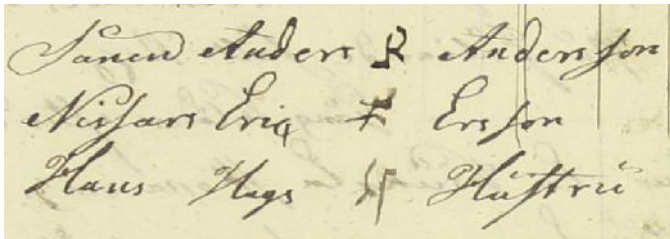 Anders Andersson
Nissars Eric Ersson
Hans Hags Hustru